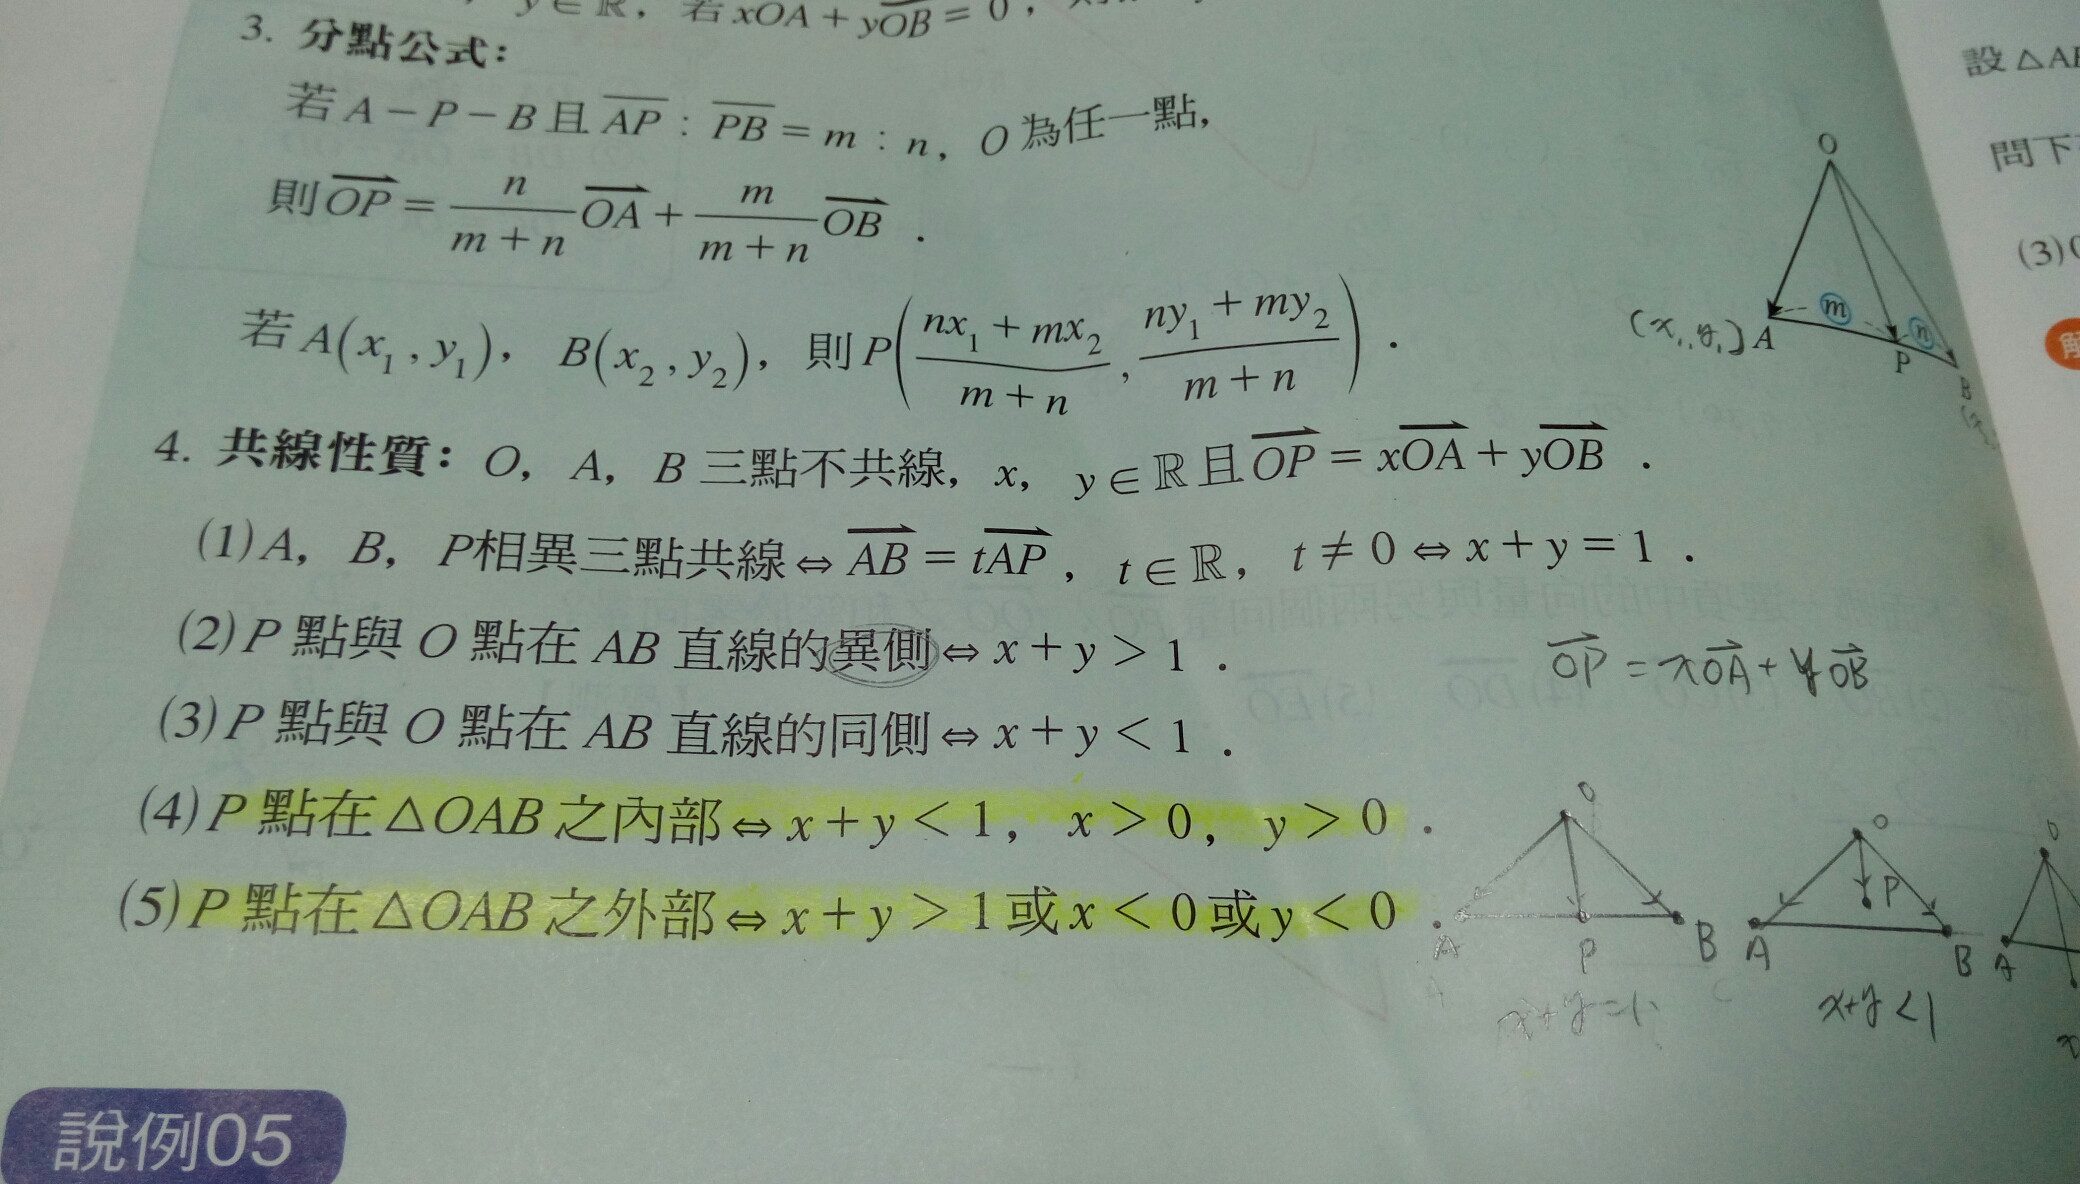 y∈ℝ，若 xOA + yOB = 0，
3. 分點公式：
若 A－P－B 且 AP : PB = m : n，O 為任一點，
則 OP = n/(m+n) OA + m/(m+n) OB．
若 A(x₁, y₁)，B(x₂, y₂)，則 P((nx₁+mx₂)/(m+n), (ny₁+my₂)/(m+n))．
O
m
n
(x₁, y₁) A
P
B
4. 共線性質：O，A，B 三點不共線，x，y∈ℝ 且 OP = xOA + yOB．
(1) A，B，P相異三點共線 ⇔ AB = tAP，t∈ℝ，t ≠ 0 ⇔ x + y = 1．
(2) P 點與 O 點在 AB 直線的異側 ⇔ x + y > 1．
OP = xOA + yOB
(3) P 點與 O 點在 AB 直線的同側 ⇔ x + y < 1．
(4) P 點在 △OAB 之內部 ⇔ x + y < 1，x > 0，y > 0．
(5) P 點在 △OAB 之外部 ⇔ x + y > 1 或 x < 0 或 y < 0．
O
A P B
x+y=1
O
P
A B
x+y<1
O
A
說例05
設 △AB
問下
(3)
解